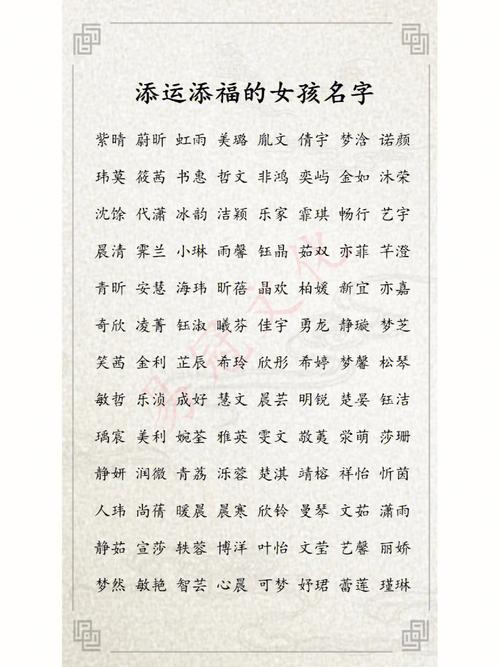 添运添福的女孩名字
紫晴 蔚昕 虹雨 美璐 胤文 倩宇 梦浛 诺颜
玮莫 筱茜 书惠 哲文 非鸿 奕屿 金如 沐荣
沈馀 代潇 冰韵 洁颖 乐家 霏琪 畅行 艺宇
晨清 霁兰 小琳 雨馨 钰晶 茹双 亦菲 芊澄
青昕 安慧 海玮 昕蓓 晶欢 柏媛 新宜 亦嘉
奇欣 凌菁 钰淑 曦芬 佳宇 勇龙 静璇 梦芝
笑茜 金利 芷辰 希玲 欣彤 希婷 梦馨 松琴
敏哲 乐浈 成好 慧文 晨芸 明锐 楚晏 钰洁
瑀宸 美利 婉荃 雅英 雯文 敬荑 荥萌 莎珊
静妍 润微 青荔 泺蓉 楚淇 靖榕 祥怡 忻茵
人玮 尚蒨 暖晨 晨寒 欣铃 曼琴 文茹 潇雨
静茹 宣莎 轶蓉 博洋 叶怡 文莹 艺馨 丽娇
梦然 敏艳 智芸 心晨 可梦 妤珺 蕾莲 瑾琳